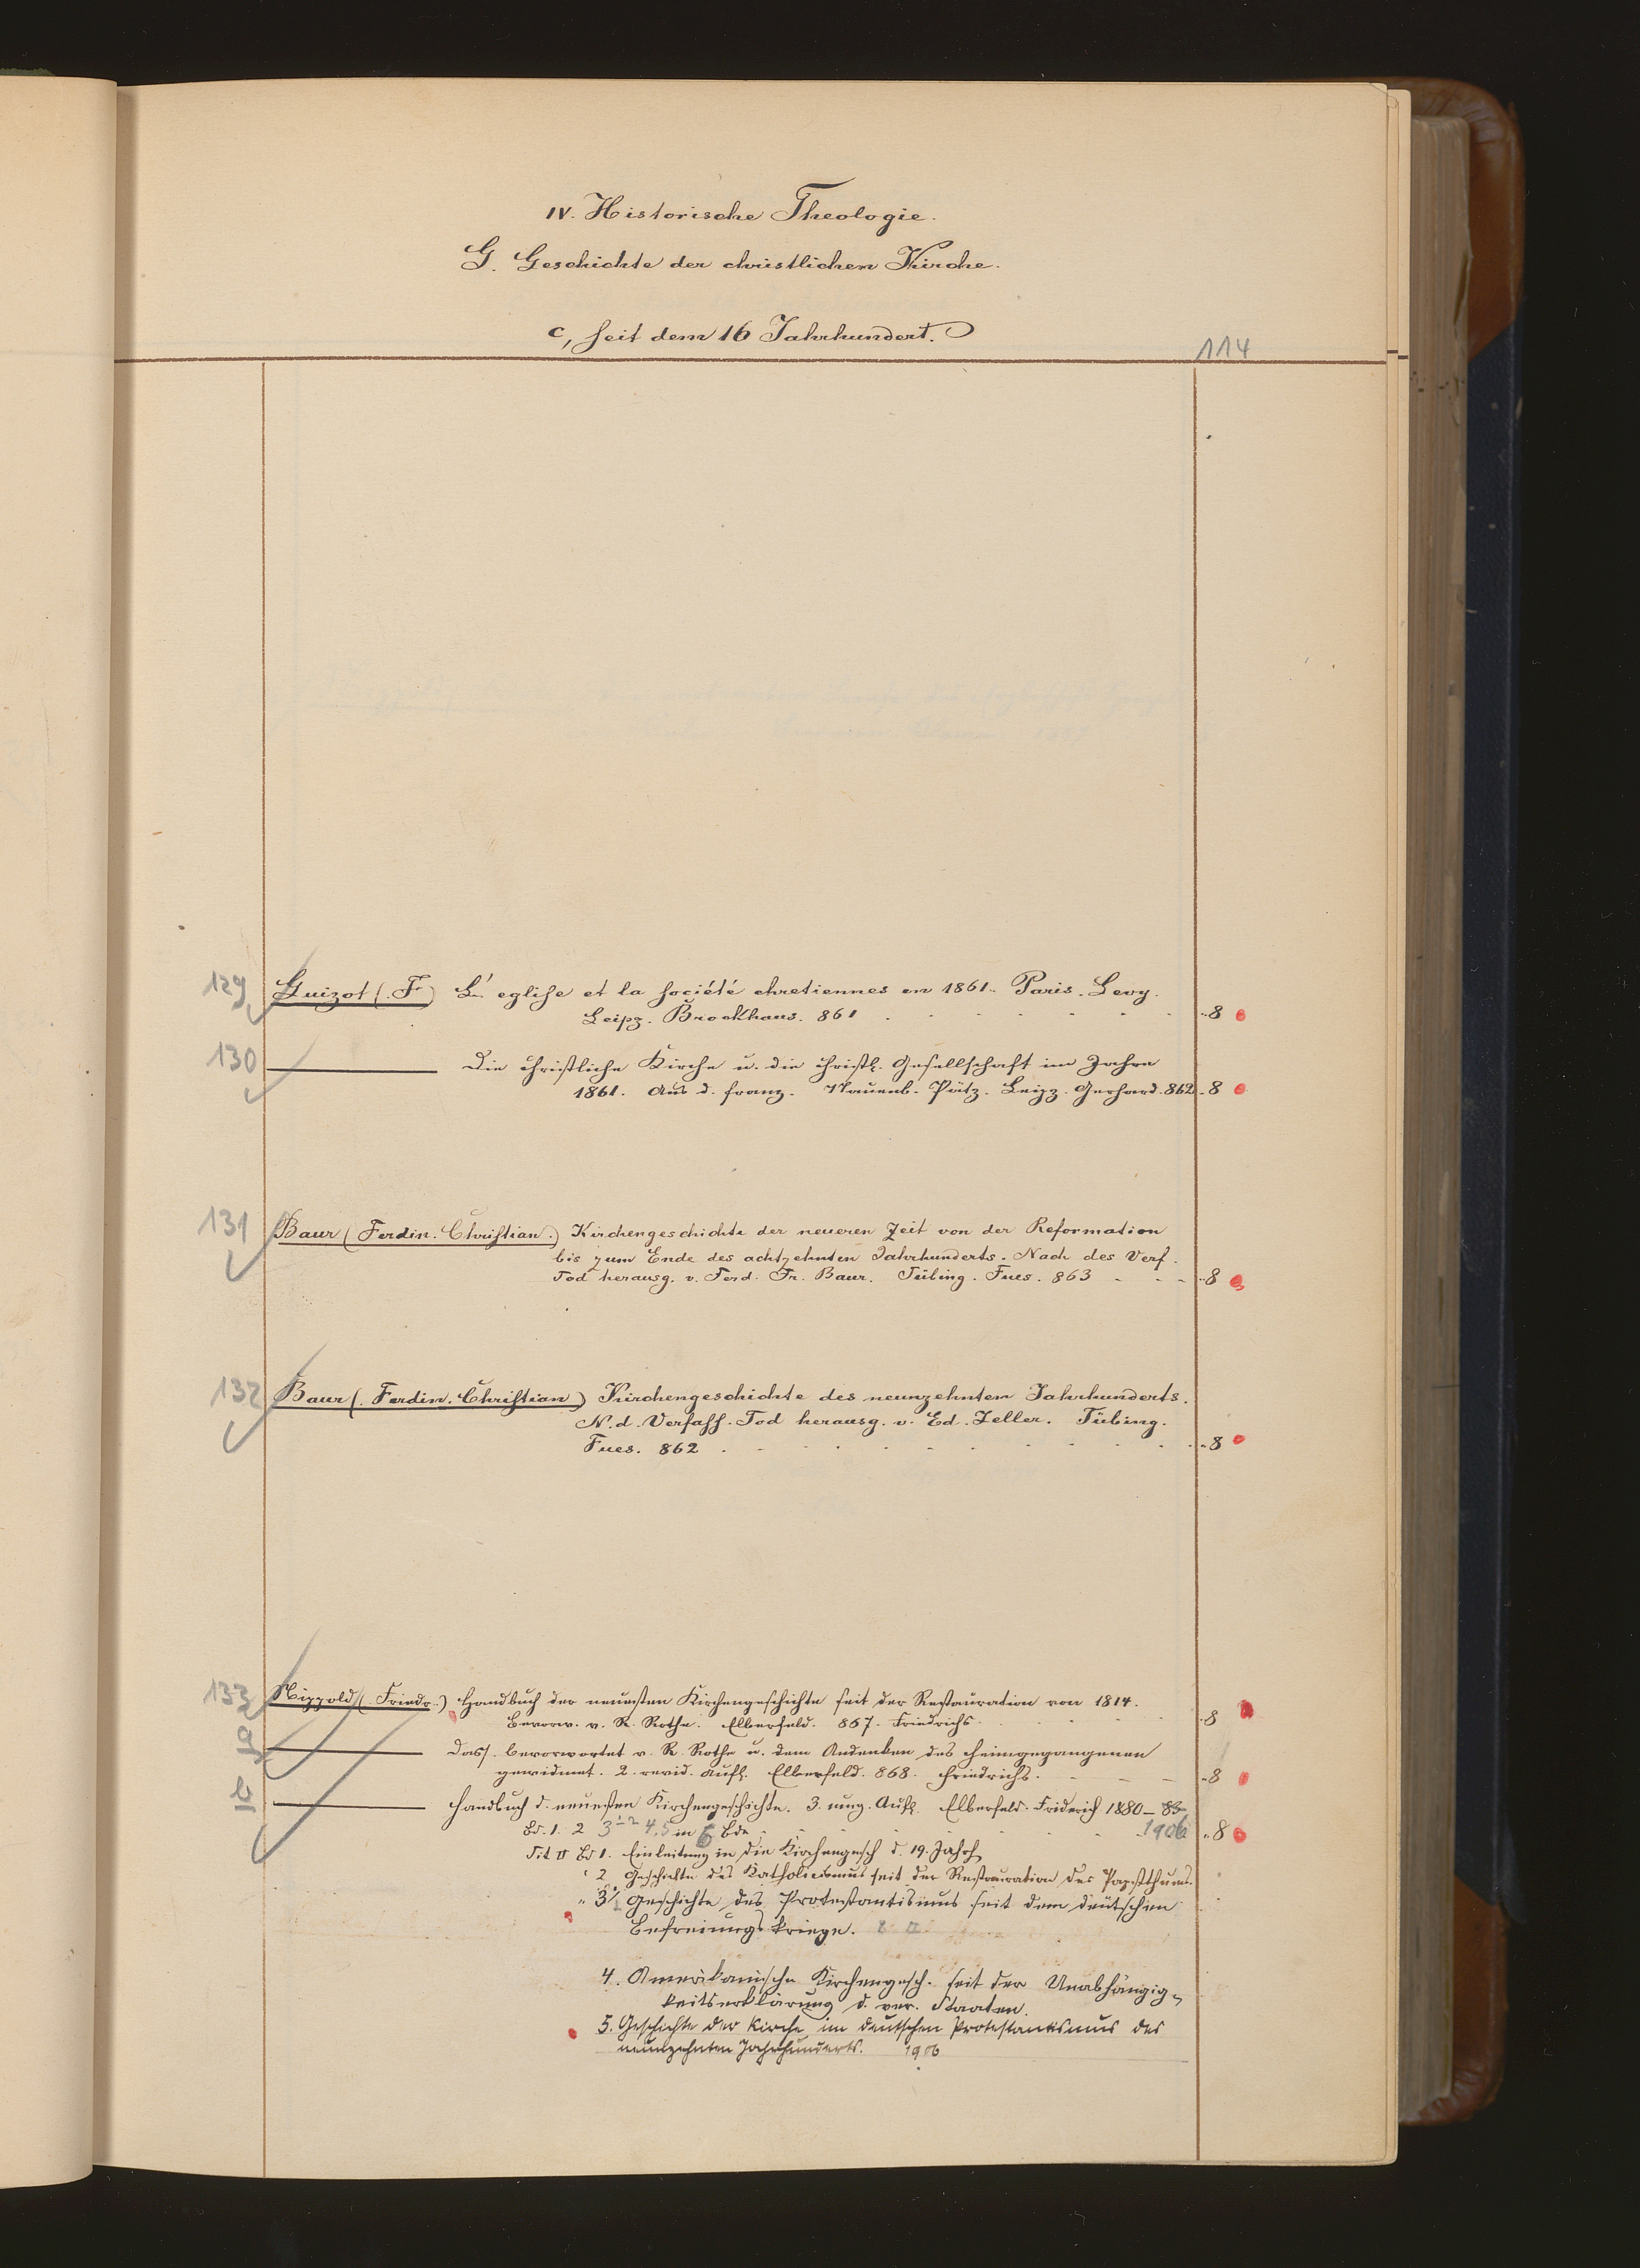 IV. Historische Theologie.
G. Geschichte der christlichen Kirche.
c, seit dem 16 Jahrhundert.
114
129 Guizot (F) L'eglise et la société chretiennes en 1861. Paris. Levy.
Leipz. Brockhaus. 861 . . . . . . . 8
130 ——— Die christliche Kirche u. die christl. Gesellschaft im Jahre
1861. Aus d. franz. Nauenb. Pätz. Leipz. Gerhard. 862. 8
131 Baur (Ferdin. Christian.) Kirchengeschichte der neueren Zeit von der Reformation
bis zum Ende des achtzehnten Jahrhunderts. Nach des Verf.
Tod herausg. v. Ferd. Fr. Baur. Tübing. Fues. 863 - - - 8
132 Baur (Ferdin. Christian) Kirchengeschichte des neunzehnten Jahrhunderts.
N. d. Verfass. Tod herausg. v. Ed. Zeller. Tübing.
Fues. 862 . . . . . . . . . . 8
133 Nippold (Friedr.) Handbuch der neuesten Kirchengeschichte seit der Restauration von 1814.
Bevorw. v. R. Rothe. Elberfeld. 867. Friedrichs. . . . 8
a ——— Dass. bevorwortet v. R. Rothe u. dem Andenken des heimgegangenen
gewidmet. 2. revid. Aufl. Elberfeld. 868. Friedrichs. - - - 8
b ——— Handbuch d. neuesten Kirchengeschichte. 3. umg. Aufl. Elberfeld. Friderich 1880–83
Bd. 1. 2 3 1-2 4, 5 in 6 Bde . . . . 1906 8
Tit II Bd 1. Einleitung in die Kirchengesch d. 19. Jahrh
" 2 Geschichte des Katholicismus seit der Restauration des Papstthums.
" 3 1/2 Geschichte des Protestantismus seit dem deutschen
Befreiungskriege. I II
4. Amerikanische Kirchengesch. seit der Unabhängig-
keitserklärung d. ver. Staaten.
5. Geschichte der Kirche im deutschen Protestantismus des
neunzehnten Jahrhunderts. 1906